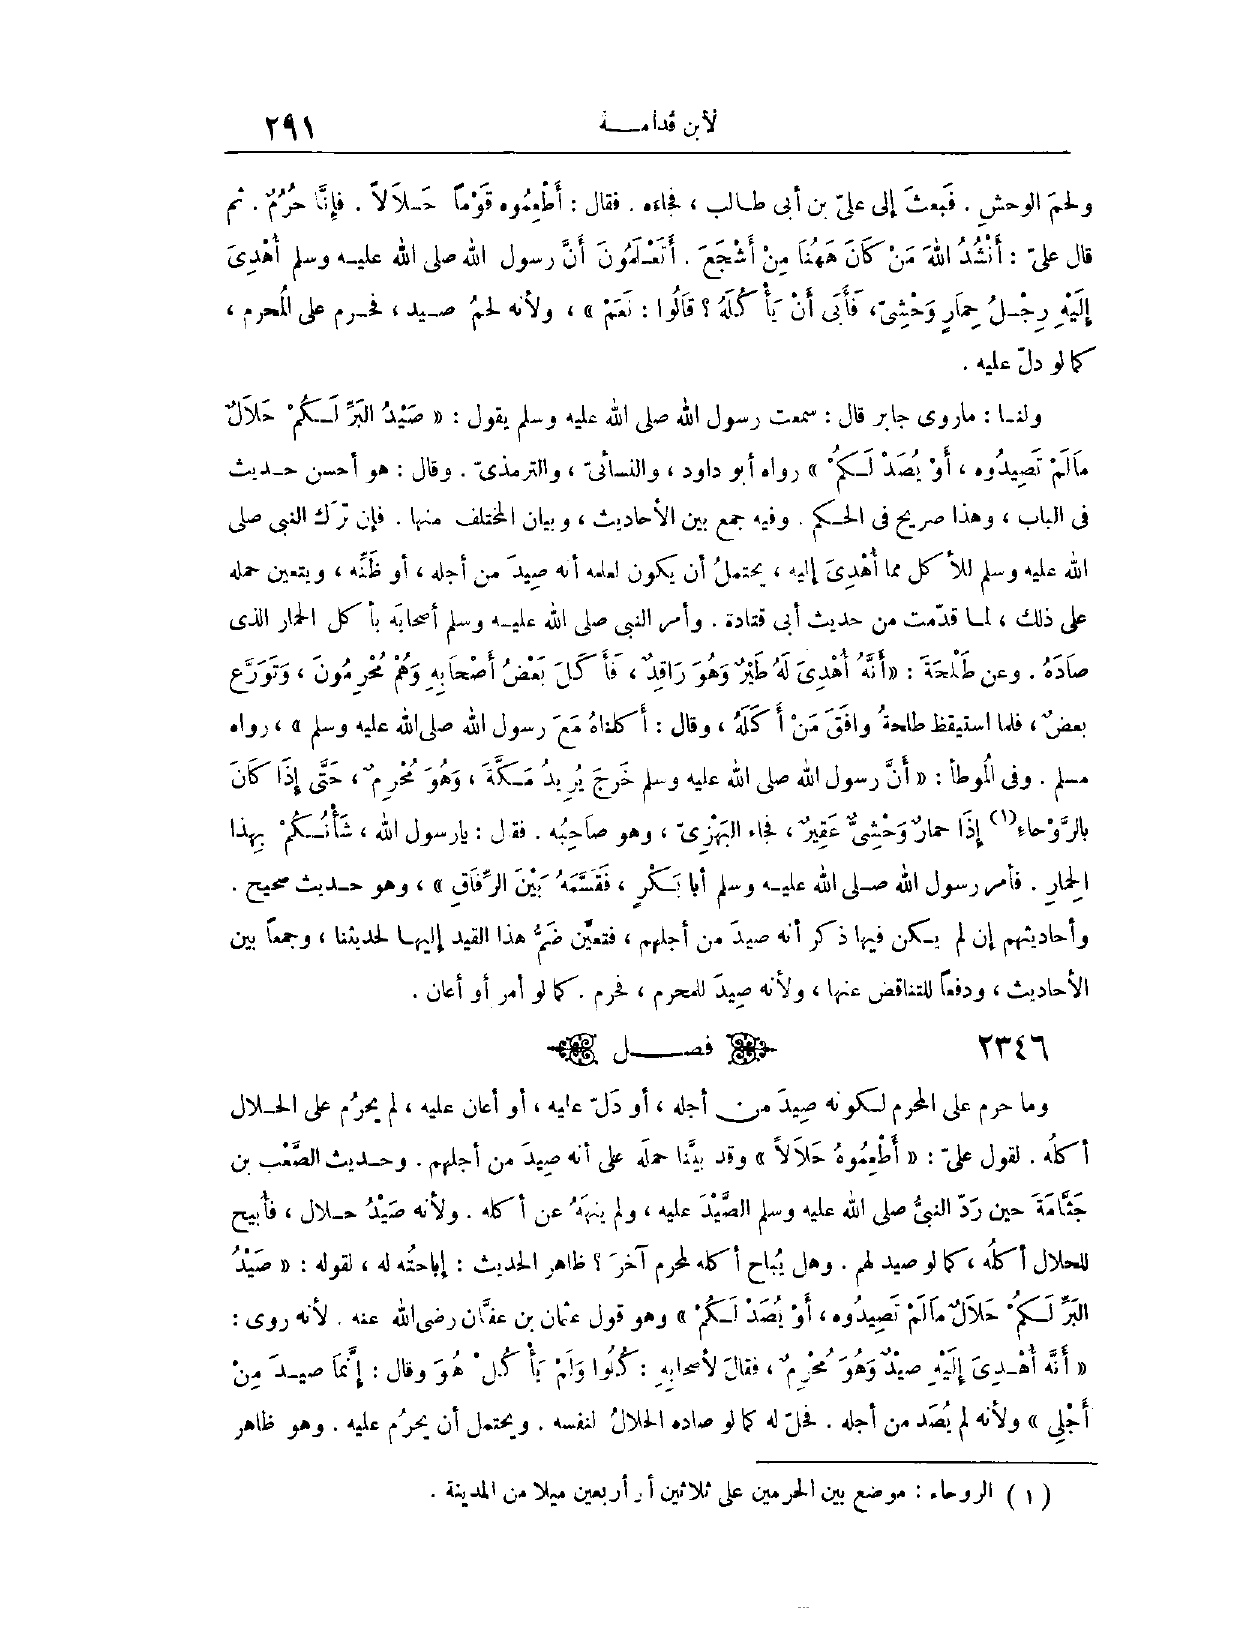 لابن قدامـــة ٢٩١
ولحمَ الوحشِ . فَبعثَ إلى علىّ بن أبى طـالب ، فجاءه . فقال : أَطْعِمُوه قَوْماً حَـلاَلاً . فإنَّا حُرُمٌ . ثم
قال علىّ : أَنْشُدُ اللهَ مَنْ كَانَ هَهُنَا مِنْ أَشْجَعَ . أَتَعْـلَمُونَ أَنَّ رسول الله صلى الله عليـه وسلم أُهْدِىَ
إِلَيْهِ رِجْـلُ حِمَارِ وَحْشِىّ، فَأَبَى أَنْ يَأْكُلَهُ ؟ قَالُوا : نَعَمْ » ، ولأنه لحمُ صـيد ، فحـرم على المُحرم ،
كما لو دلّ عليه .
ولنـا : ماروى جابر قال : سمعت رسول الله صلى الله عليه وسلم يقول : « صَيْدُ البَرِّ لَـكُمْ حَلاَلٌ
مَالَمْ تَصِيدُوه ، أَوْ يُصَدْ لَـكُمْ » رواه أبو داود ، والنسائىّ ، والترمذىّ . وقال : هو أحسن حـديث
فى الباب ، وهذا صريح فى الحـكم . وفيه جمع بين الأحاديث ، وبيان المختلف منها . فإن ترْك النبى صلى
الله عليه وسلم للأكل مما أُهْدِىَ إليه ، يحتملُ أن يكون لعلمه أنه صِيدَ من أجله ، أو ظَنِّه ، ويتعين حمله
على ذلك ، لمـا قدّمت من حديث أبى قتادة . وأمر النبى صلى الله عليـه وسلم أصحابَه بأكل الحمار الذى
صَادَهُ . وعن طَلْحَةَ : «أَنَّهُ أُهْدِىَ لَهُ طَيْرٌ وَهُوَ رَاقِدٌ ، فَأَكَلَ بَعْضُ أَصْحَابِهِ وَهُمْ مُحْرِمُونَ ، وَتَوَرَّع
بعضٌ ، فلما استيقظ طلحةُ وافَقَ مَنْ أَكَلَهُ ، وقال : أَكلناهُ مَعَ رسول الله صلى الله عليه وسلم » ، رواه
مسلم . وفى المُوطأ : « أَنَّ رسول الله صلى الله عليه وسلم خَرَجَ يُرِيدُ مَـكَّةَ ، وَهُوَ مُحْرِمٌ ، حَتَّى إِذَا كَانَ
بالرَّوْحاء(١) إِذَا حمارٌ وَحْشِىٌّ عَقِيرٌ ، فجاء البَهْزِىّ ، وهو صاحِبُه . فقال : يارسول الله ، شَأْنُـكُمْ بِهذا
الِحمارِ . فأمر رسول الله صـلى الله عليـه وسلم أبا بَـكْرٍ ، فَقَسَّمَهُ بَيْنَ الرِّفَاقِ » ، وهو حـديث صحيح .
وأحاديثهم إن لم يـكن فيها ذكر أنه صيدَ من أجلهم ، فتعيَّن ضَمُّ هذا القيد إليهـا لحديثنا ، وجمعاً بين
الأحاديث ، ودفعاً للتناقض عنها ، ولأنه صِيدَ للمحرم ، فحرم . كما لو أمر أو أعان .
٢٣٤٦ فصــــل
وما حرم على المُحرم لـكونه صِيدَ من أجله ، أو دَلّ عليه ، أو أعان عليه ، لم يحرُم على الحـلال
أكلُه . لقول علىّ : « أَطْعِمُوهُ حَلاَلاً » وقد بيَّنا حملَه على أنه صِيدَ من أجلهم . وحـديث الصَّعْب بن
جَثَّامَةَ حين رَدّ النبىُّ صلى الله عليه وسلم الصَّيْدَ عليه ، ولم ينهَهُ عن أكله . ولأنه صَيْدُ حـلال ، فأُبيح
للحلال أكلُه ، كما لو صيد لهم . وهل يُباح أكله لمحرم آخرَ ؟ ظاهر الحديث : إباحتُه له ، لقوله : « صَيْدُ
البَرِّ لَـكُمْ حَلاَلٌ مَالَمْ تَصِيدُوه ، أَوْ يُصَدْ لَـكُمْ » وهو قول عثمان بن عفَّان رضى الله عنه . لأنه روى :
« أَنَّه أُهْـدِىَ إِلَيْهِ صيدٌ وَهُوَ مُحْرِمٌ ، فقالَ لأصحابِهِ : كُلُوا وَلَمْ يَأْكُلْ هُوَ وقال : إِنَّمَا صيـدَ مِنْ
أَجْلِى » ولأنه لم يُصَد من أجله . فحلّ له كما لو صاده الحلالُ لنفسه . ويحتمل أن يحرُم عليه . وهو ظاهر
( ١ ) الروحاء : موضع بين الحرمين على ثلاثين أو أربعين ميلا من المدينة .